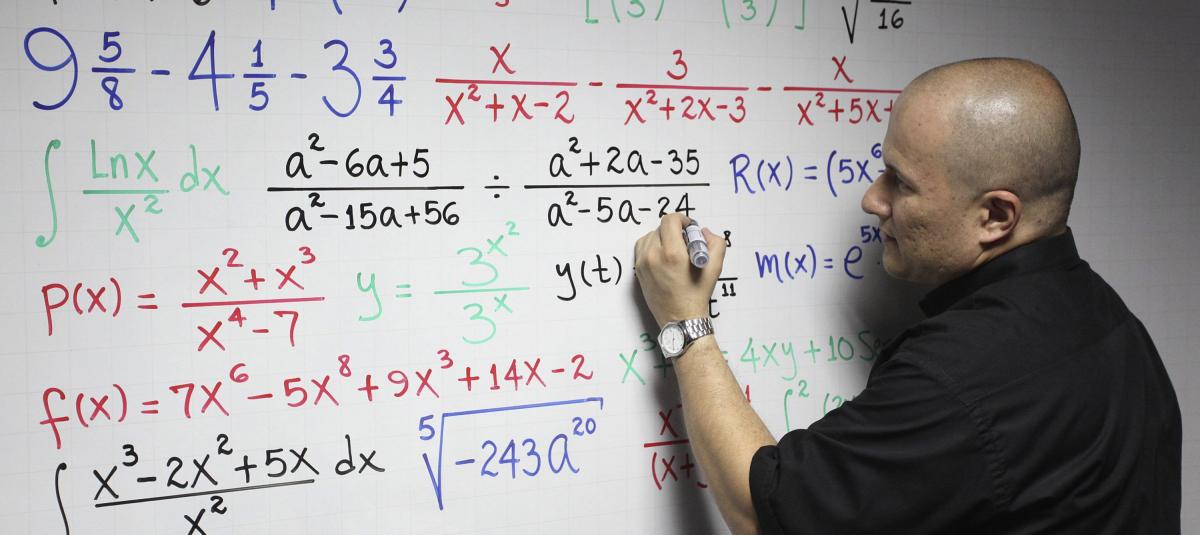 [(3) (3)] √ 16
9 5/8 - 4 1/5 - 3 3/4
x/(x²+x-2) - 3/(x²+2x-3) - x/(x²+5x+
∫ Lnx/x² dx
(a²-6a+5)/(a²-15a+56) ÷ (a²+2a-35)/(a²-5a-24)
R(x) = (5x⁶
p(x) = (x²+x³)/(x⁴-7)
y = 3^(x²)/3^x
y(t)
8
t¹¹
m(x) = e^(5x
f(x) = 7x⁶-5x⁸+9x³+14x-2
x³+ = 4xy+10Se
∫ (x³-2x²+5x)/x² dx
⁵√(-243a²⁰)
(x+
∫²